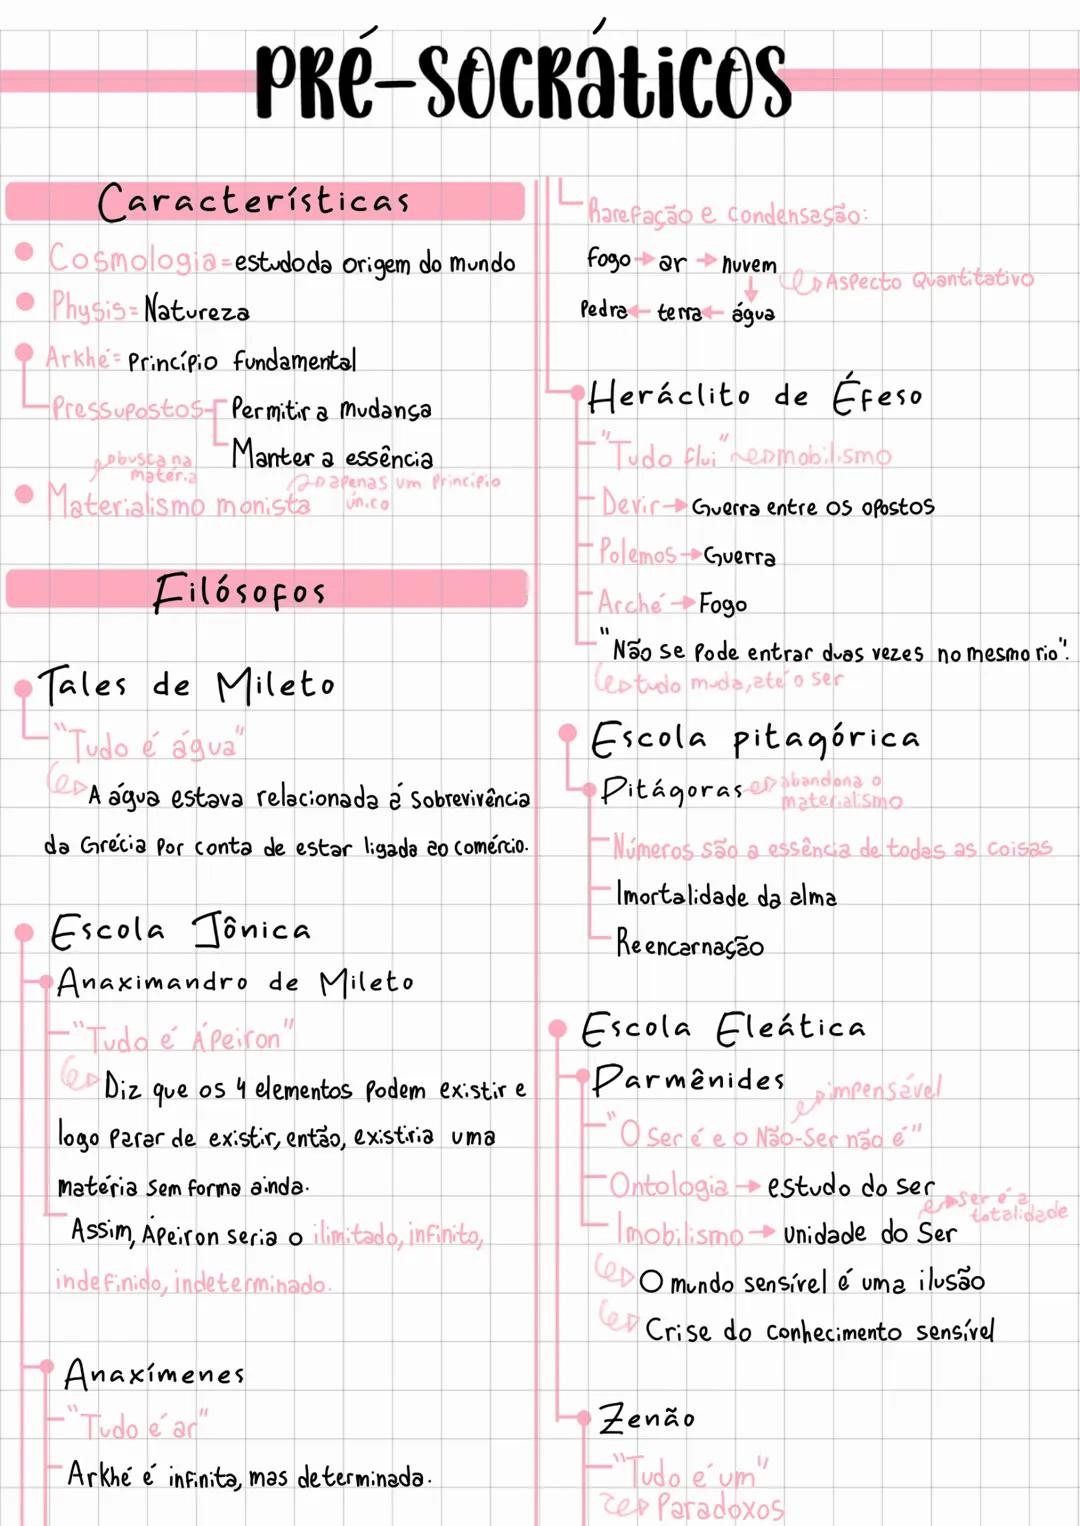 PRÉ-SOCRÁTICOS
Características
Cosmologia = estudo da origem do mundo
Physis = Natureza
Arkhé = Princípio fundamental
Pressupostos
Permitir a mudança
Manter a essência
busca na
matéria
apenas um Princípio
único
Materialismo monista
Filósofos
Tales de Mileto
"Tudo é água"
A água estava relacionada à sobrevivência
da Grécia por conta de estar ligada ao comércio.
Escola Jônica
Anaximandro de Mileto
"Tudo é Ápeiron"
Diz que os 4 elementos podem existir e
logo parar de existir, então, existiria uma
matéria sem forma ainda.
Assim, Ápeiron seria o ilimitado, infinito,
indefinido, indeterminado.
Anaxímenes
"Tudo é ar"
Arkhé é infinita, mas determinada.
Rarefação e condensação:
fogo → ar → nuvem
Aspecto Quantitativo
Pedra ← terra ← água
Heráclito de Éfeso
"Tudo flui" mobilismo
Devir → Guerra entre os opostos
Polemos → Guerra
Arché → Fogo
"Não se pode entrar duas vezes no mesmo rio".
tudo muda, até o ser
Escola pitagórica
Pitágoras abandona o
materialismo
Números são a essência de todas as coisas
Imortalidade da alma
Reencarnação
Escola Eleática
Parmênides
impensável
"O Ser é e o Não-Ser não é"
Ontologia → estudo do ser
ser é a
totalidade
Imobilismo → unidade do Ser
O mundo sensível é uma ilusão
Crise do conhecimento sensível
Zenão
"Tudo é um"
Paradoxos